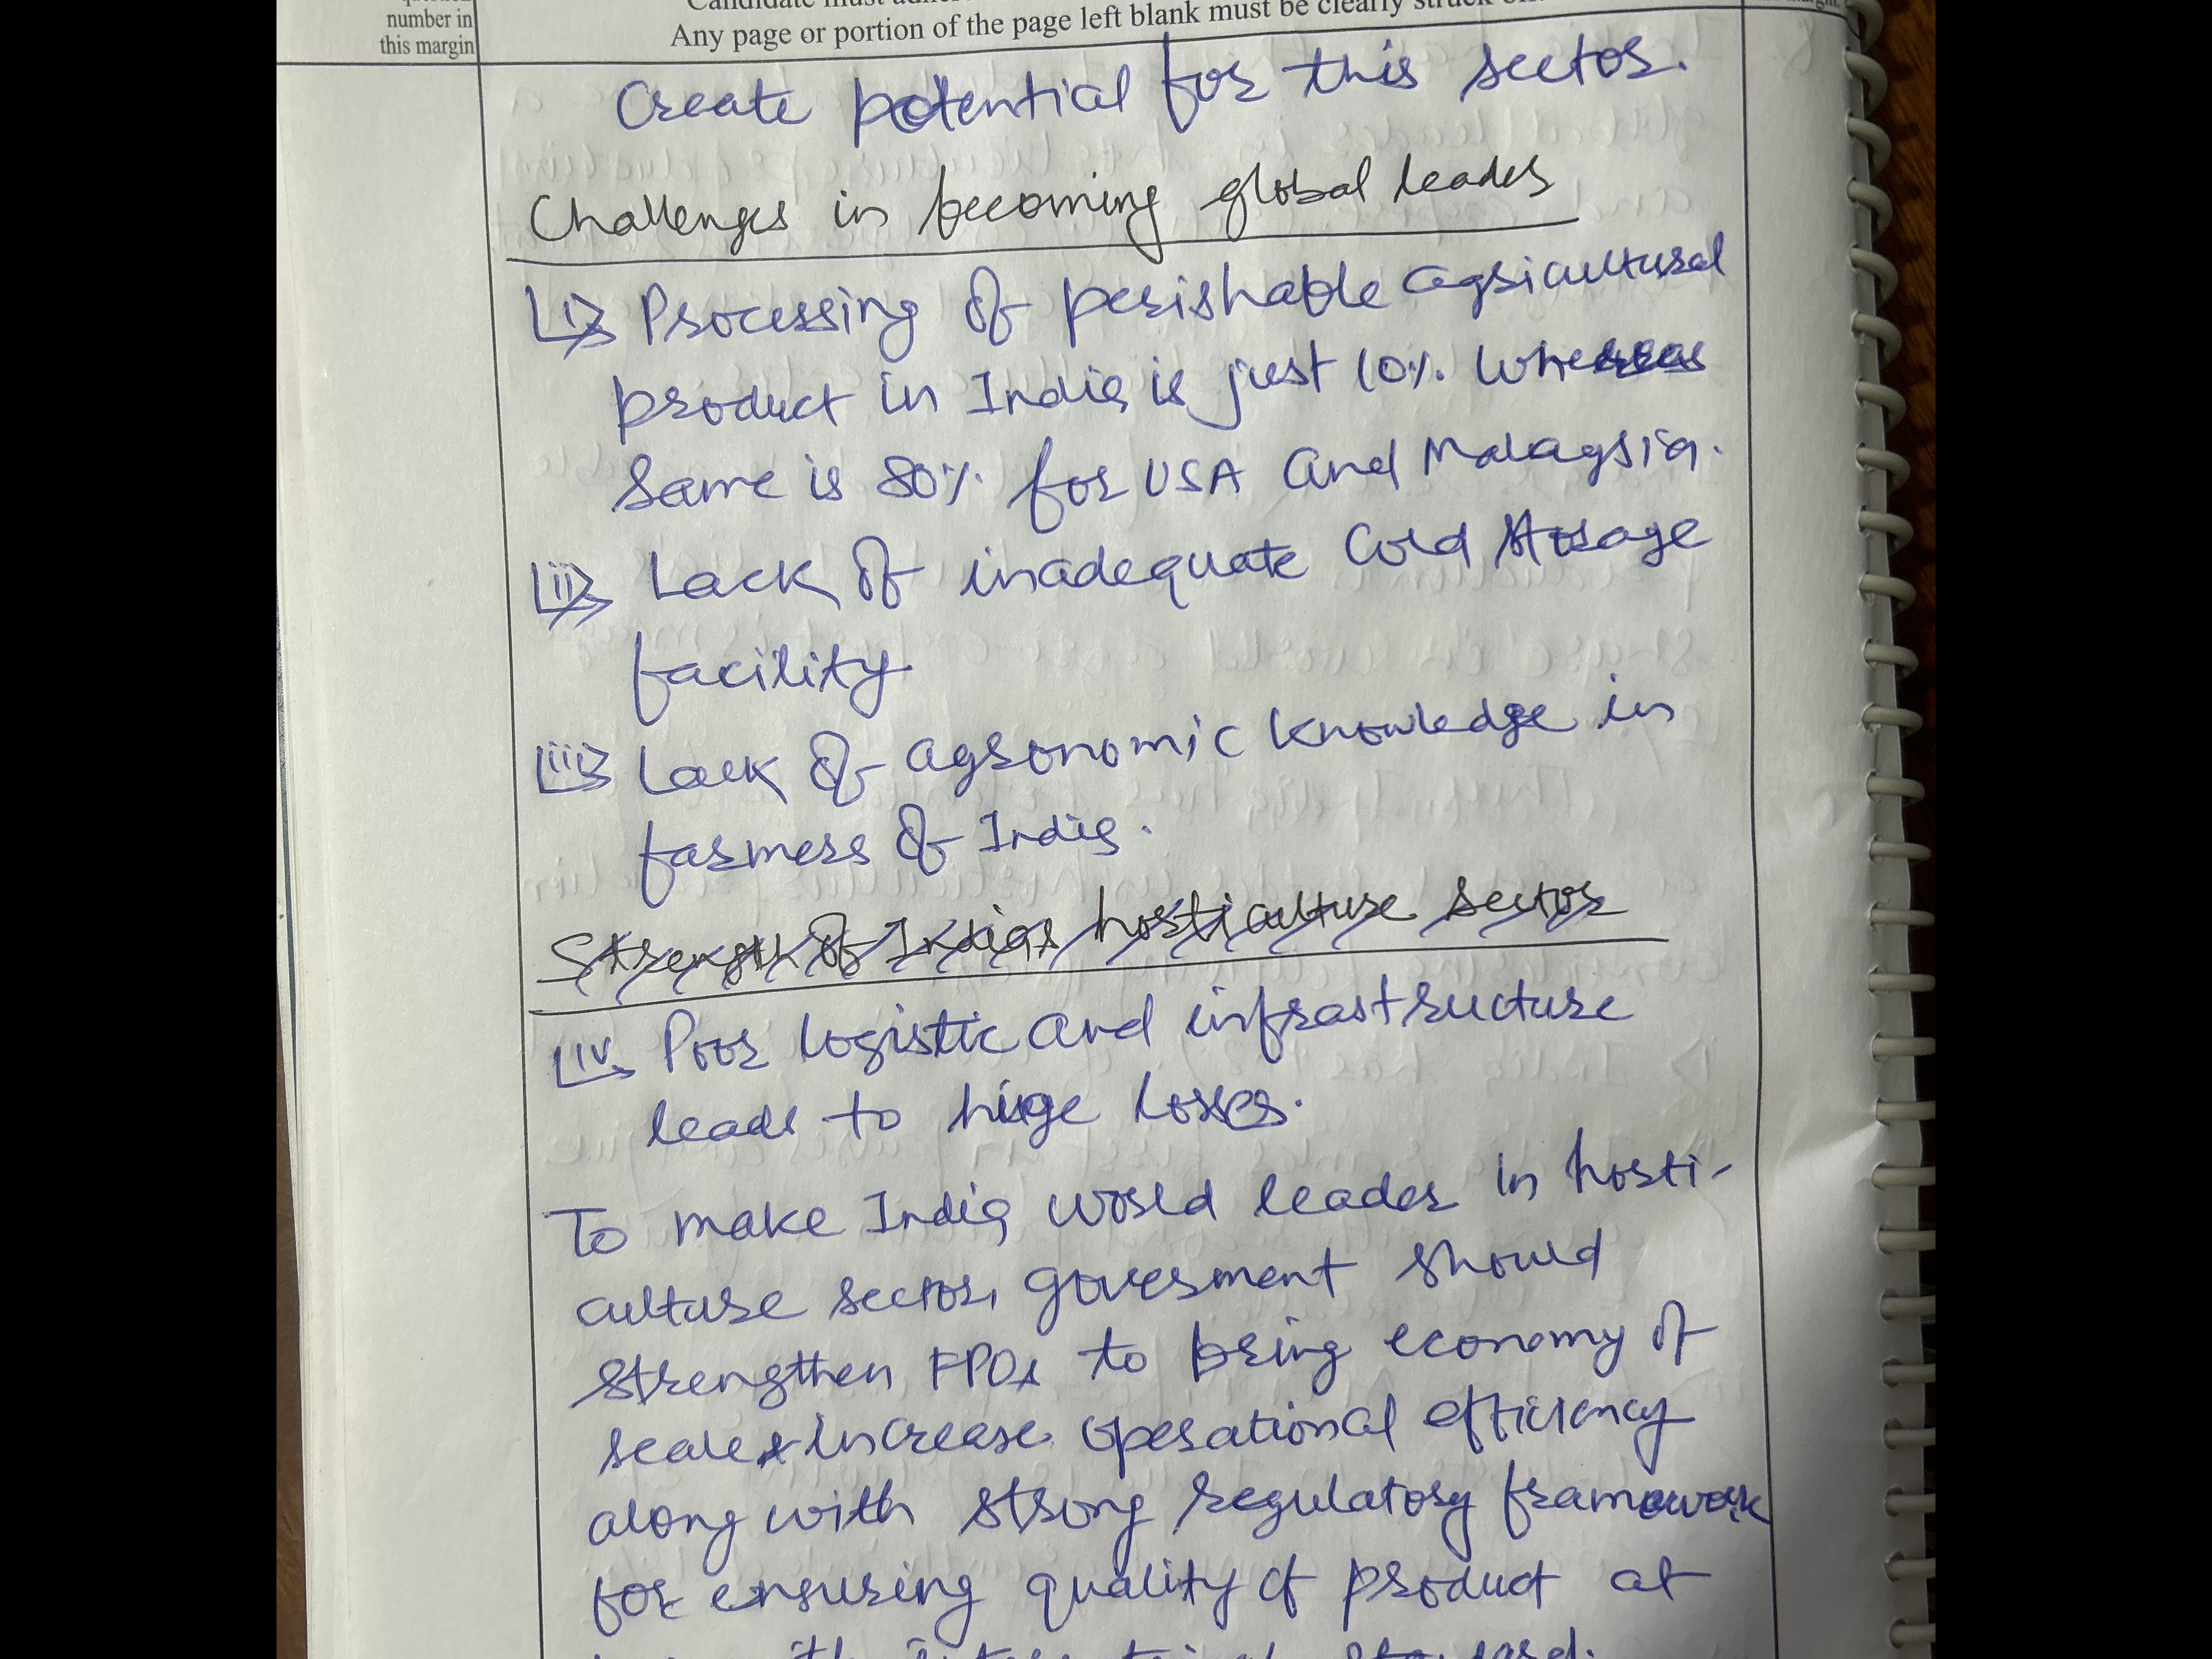 number in
this margin
Any page or portion of the page left blank must be clearly struck
Create potential for this sector.
Challenges in becoming global leader
i> Processing of perishable agricultural
product in India is just 10%. Whereas
Same is 80% for USA and Malaysia.
ii> Lack of inadequate cold storage
facility
iii> Lack of agronomic knowledge in
farmers of India.
Strength of Indias horticulture sector
iv> Poor logistic and infrastructure
leads to huge losses.
To make India world leader in horti-
culture sector, goverment should
strengthen FPOs to bring economy of
scale & increase operational efficiency
along with strong regulatory framework
for ensuring quality of product at